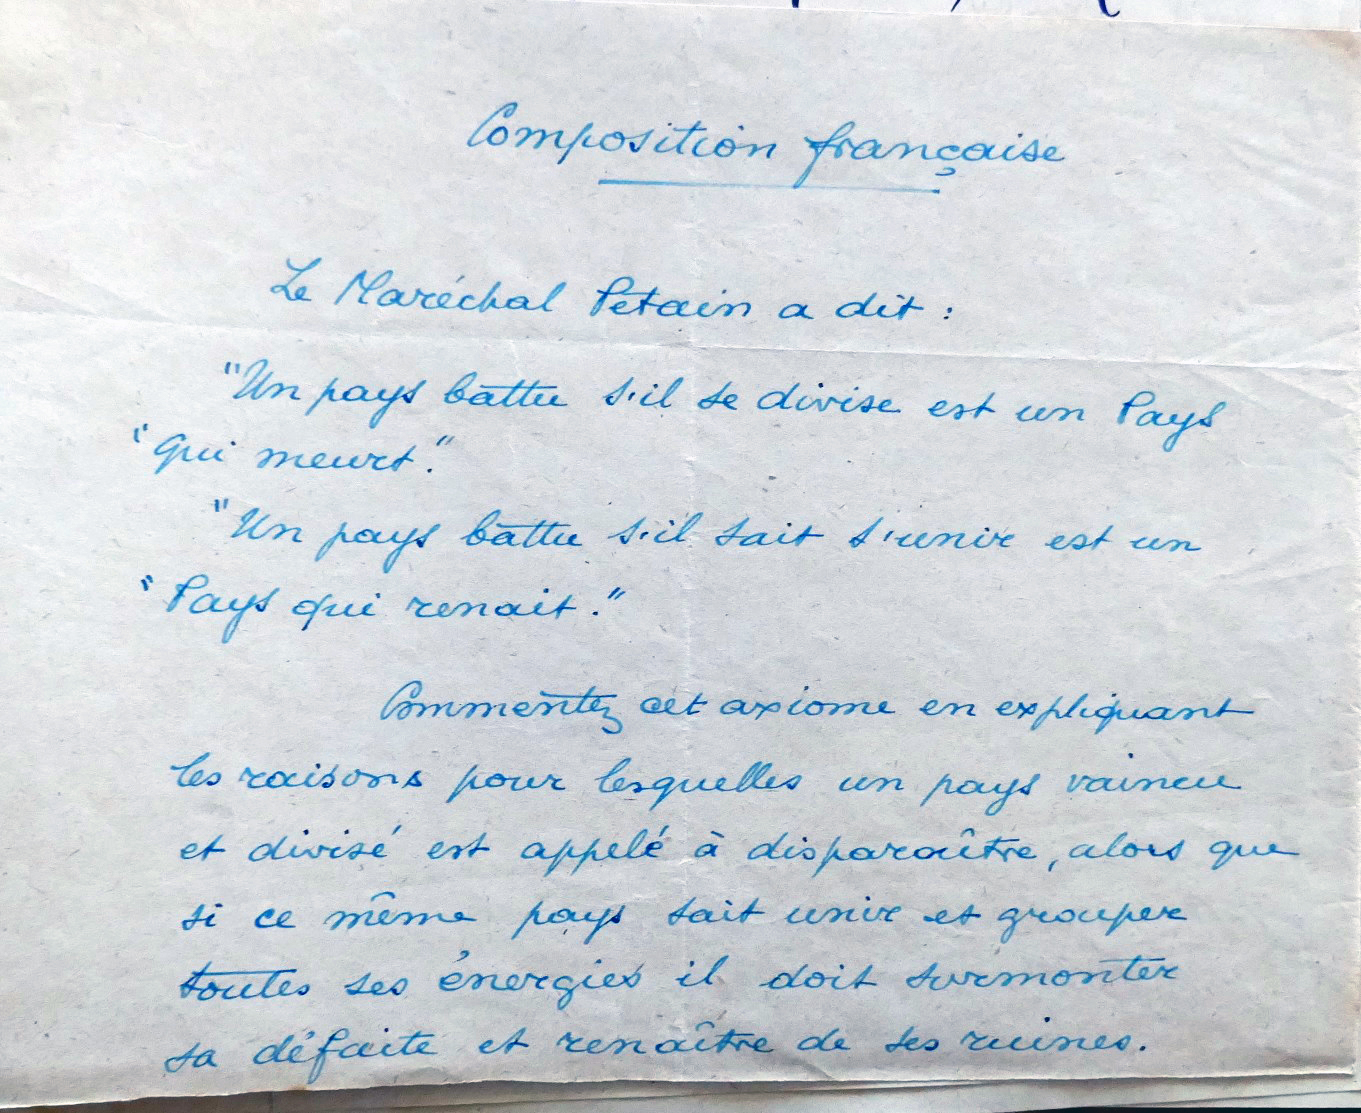 Composition française
Le Maréchal Pétain a dit :
"Un pays battu s'il se divise est un Pays
"qui meurt."
"Un pays battu s'il sait s'unir est un
"Pays qui renait."
Commentez cet axiome en expliquant
les raisons pour lesquelles un pays vaincu
et divisé est appelé à disparaître, alors que
si ce même pays sait unir et grouper
toutes ses énergies il doit surmonter
sa défaite et renaître de ses ruines.